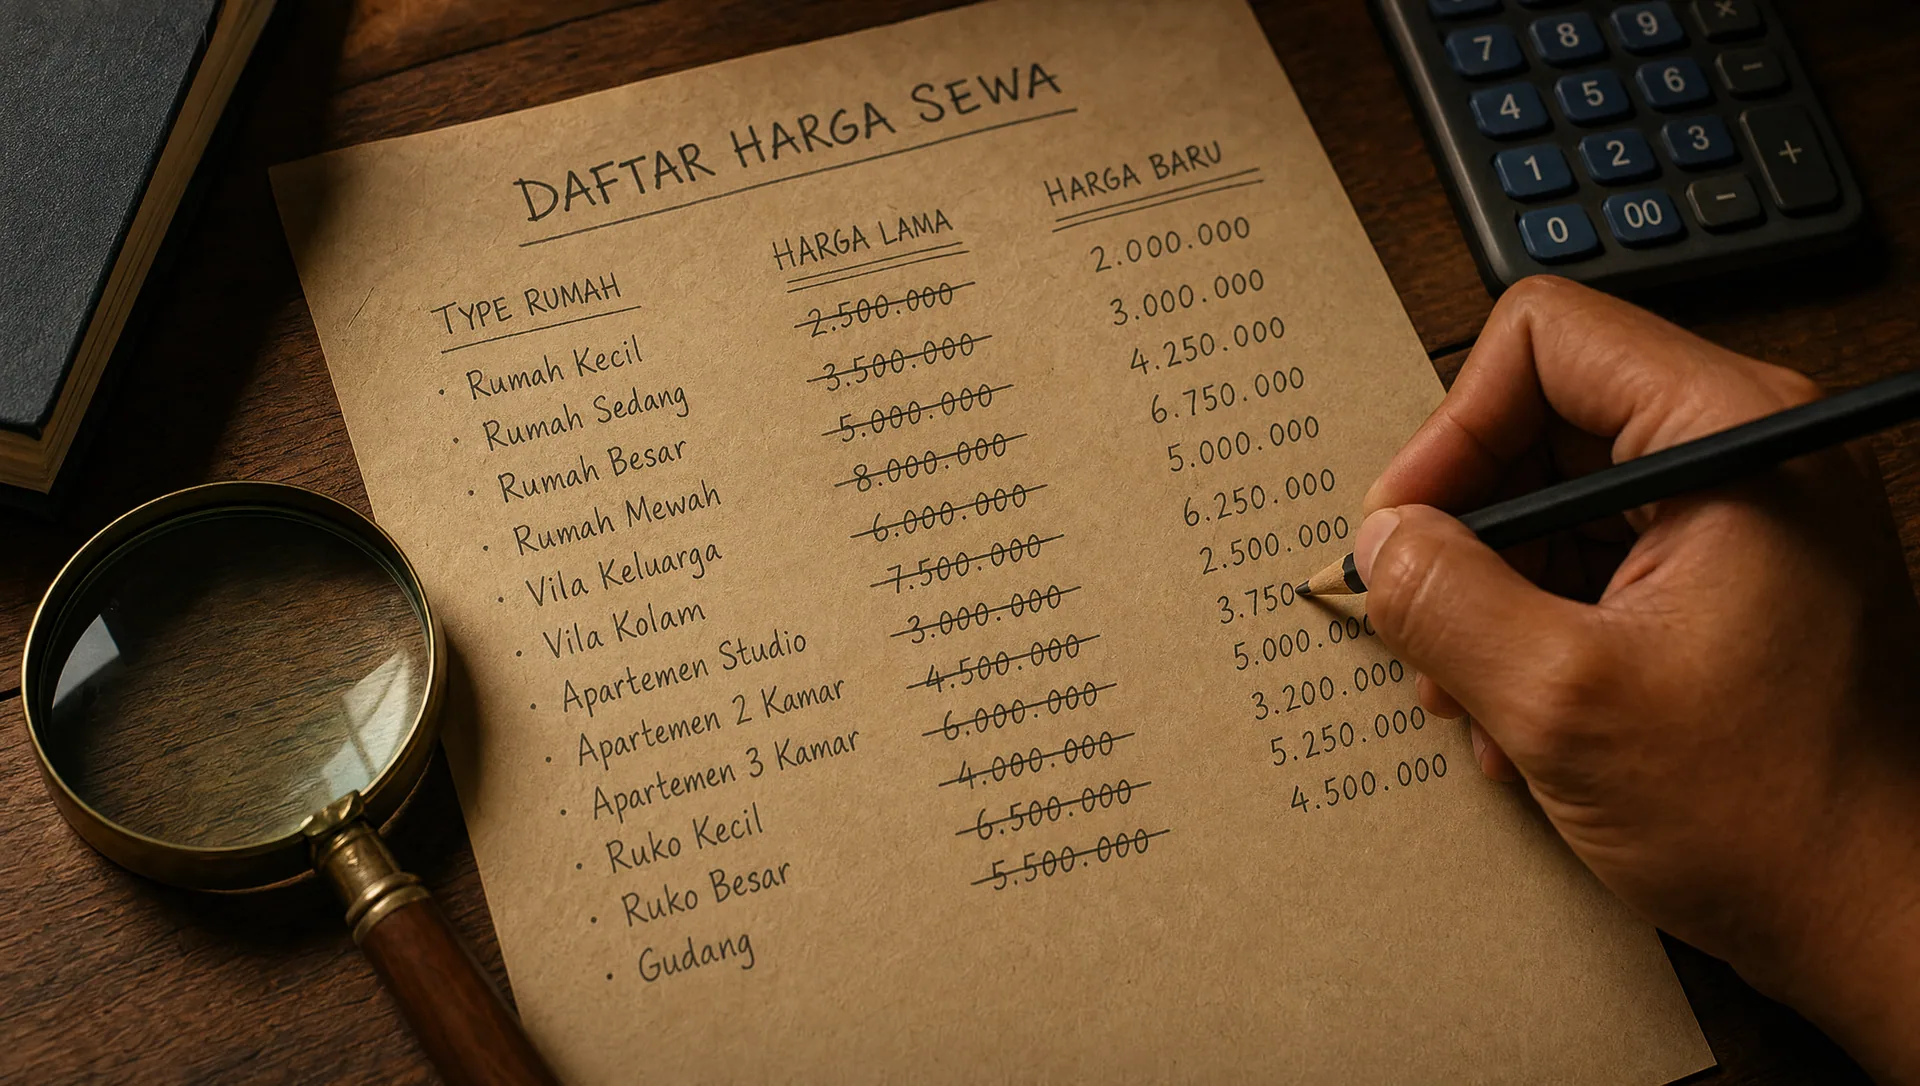 DAFTAR HARGA SEWA
TYPE RUMAH HARGA LAMA HARGA BARU
· Rumah Kecil 2.500.000 2.000.000
· Rumah Sedang 3.500.000 3.000.000
· Rumah Besar 5.000.000 4.250.000
· Rumah Mewah 8.000.000 6.750.000
· Vila Keluarga 6.000.000 5.000.000
· Vila Kolam 7.500.000 6.250.000
· Apartemen Studio 3.000.000 2.500.000
· Apartemen 2 Kamar 4.500.000 3.750
· Apartemen 3 Kamar 6.000.000 5.000.000
· Ruko Kecil 4.000.000 3.200.000
· Ruko Besar 6.500.000 5.250.000
· Gudang 5.500.000 4.500.000
7 8 9 ×
4 5 6 −
1 2 3 +
0 00 −